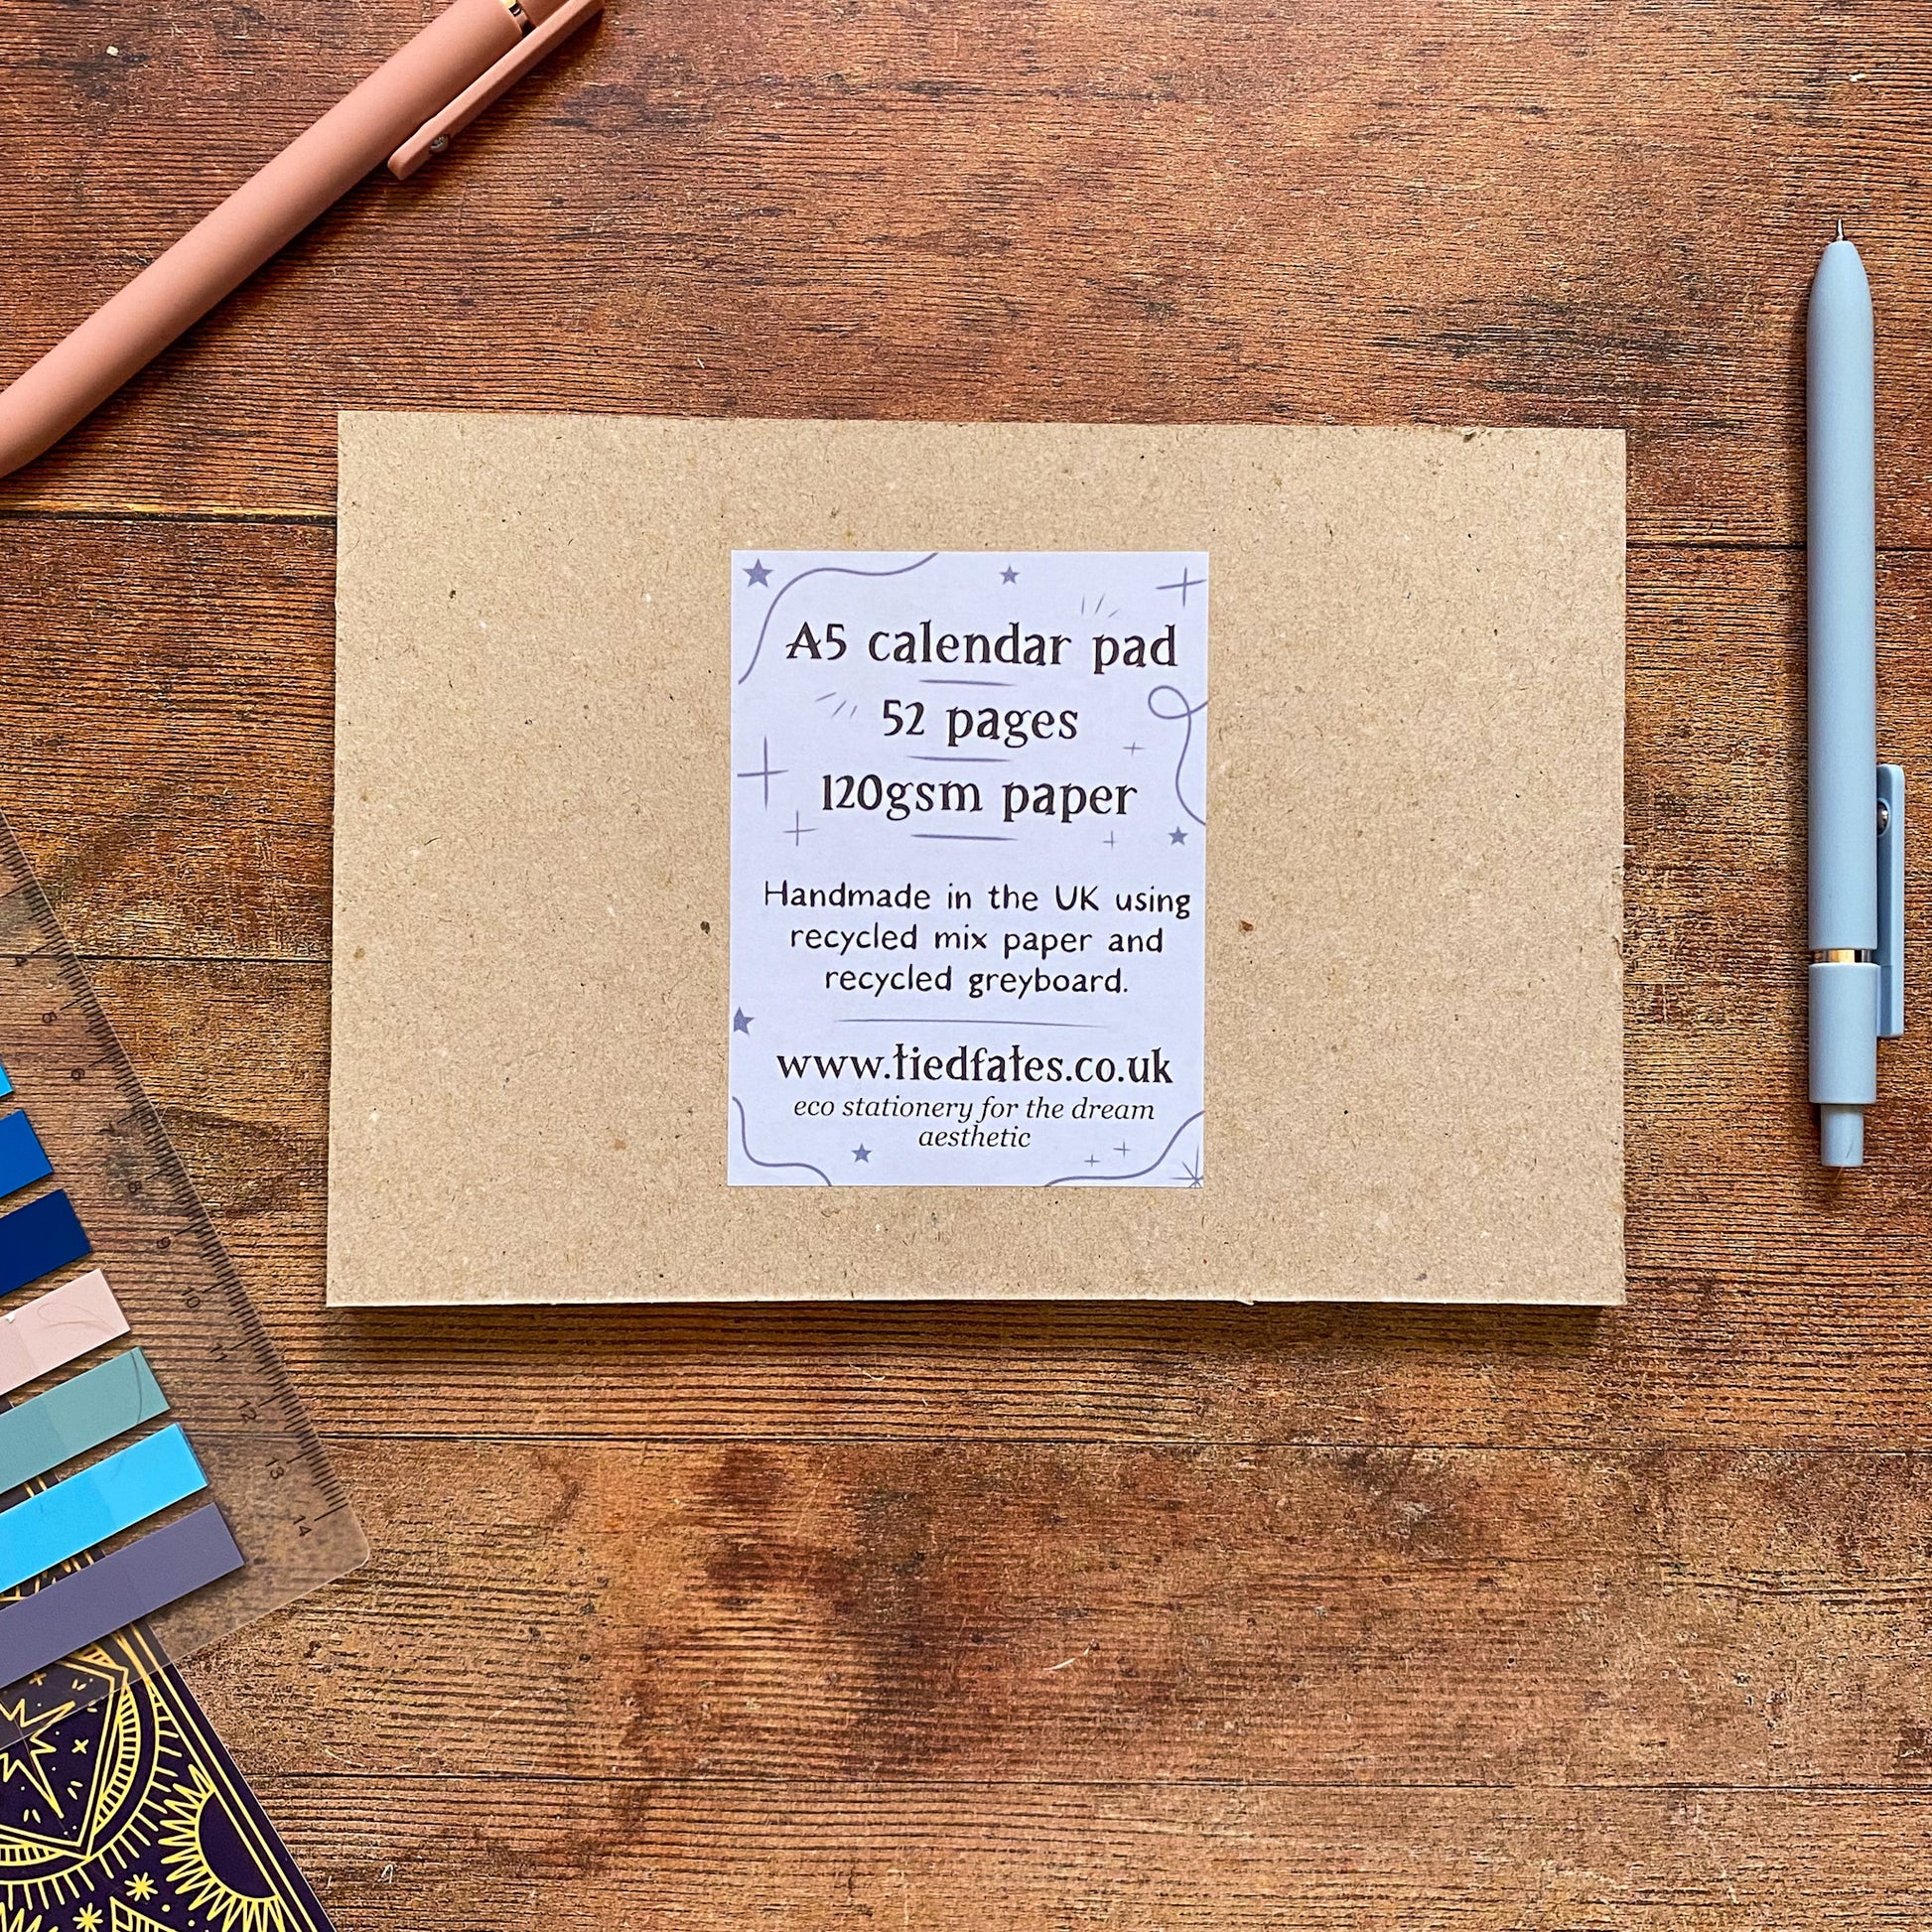 A5 calendar pad
52 pages
120gsm paper
Handmade in the UK using
recycled mix paper and
recycled greyboard.
www.tiedfates.co.uk
eco stationery for the dream
aesthetic
4
5
6
7
8
9
10
11
12
13
14